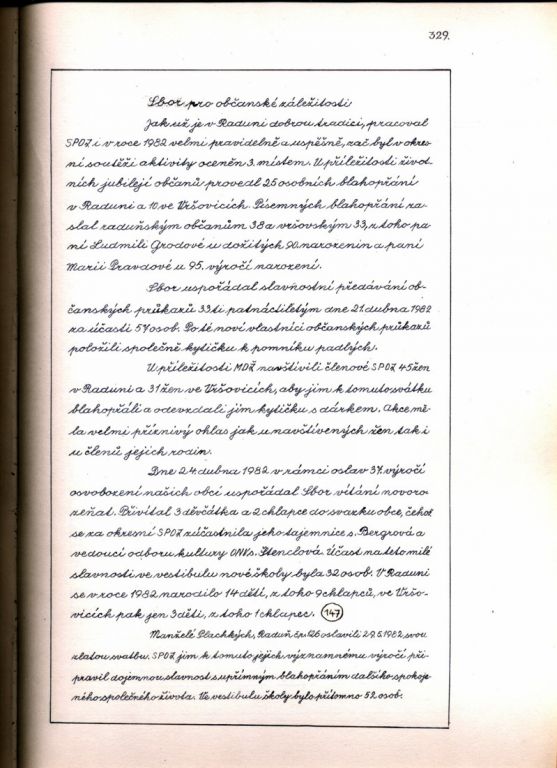 329.
Sbor pro občanské záležitosti
Jak už je v Raduni dobrou tradicí, pracoval
SPOZ i v roce 1982 velmi pravidelně a úspěšně, zač byl v okres-
ní soutěži aktivity oceněn 3. místem. U příležitosti život-
ních jubilejí občanů provedl 25 osobních blahopřání
v Raduni a 10 ve Vršovicích. Písemných blahopřání za-
slal raduňským občanům 38 a vršovským 33, z toho pa-
ní Ludmile Grodové u dožitých 90. narozenin a paní
Marii Pravdové u 95. výročí narození.
Sbor uspořádal slavnostní předávání ob-
čanských průkazů 33ti patnáctiletým dne 21. dubna 1982
za účasti 57 osob. Poté noví vlastníci občanských průkazů
položili společně kytičku k pomníku padlých.
U příležitosti MDŽ navštívili členové SPOZ 45 žen
v Raduni a 31 žen ve Vršovicích, aby jim k tomuto svátku
blahopřáli a odevzdali jim kytičku s dárkem. Akce mě-
la velmi příznivý ohlas jak u navštívených žen tak i
u členů jejich rodin.
Dne 24. dubna 1982 v rámci oslav 37. výročí
osvobození našich obcí uspořádal Sbor vítání novoro-
zeňat. Přivítal 3 děvčátka a 2 chlapce do svazku obce, čehož
se za okresní SPOZ zúčastnila jeho tajemnice s. Bergrová a
vedoucí odboru kultury ONV s. Stenclová. Účast na této milé
slavnosti ve vestibulu nové školy byla 32 osob. V Raduni
se v roce 1982 narodilo 14 dětí, z toho 9 chlapců, ve Vršo-
vicích pak jen 3 děti, z toho 1 chlapec. 147
Manželé Plachkých, Raduň čp. 126 oslavili 29.5.1982 svou
zlatou svatbu. SPOZ jim k tomuto jejich významnému výročí při-
pravil dojemnou slavnost s upřímným blahopřáním dalšího spokoje-
ného společného života. Ve vestibulu školy bylo přítomno 52 osob.